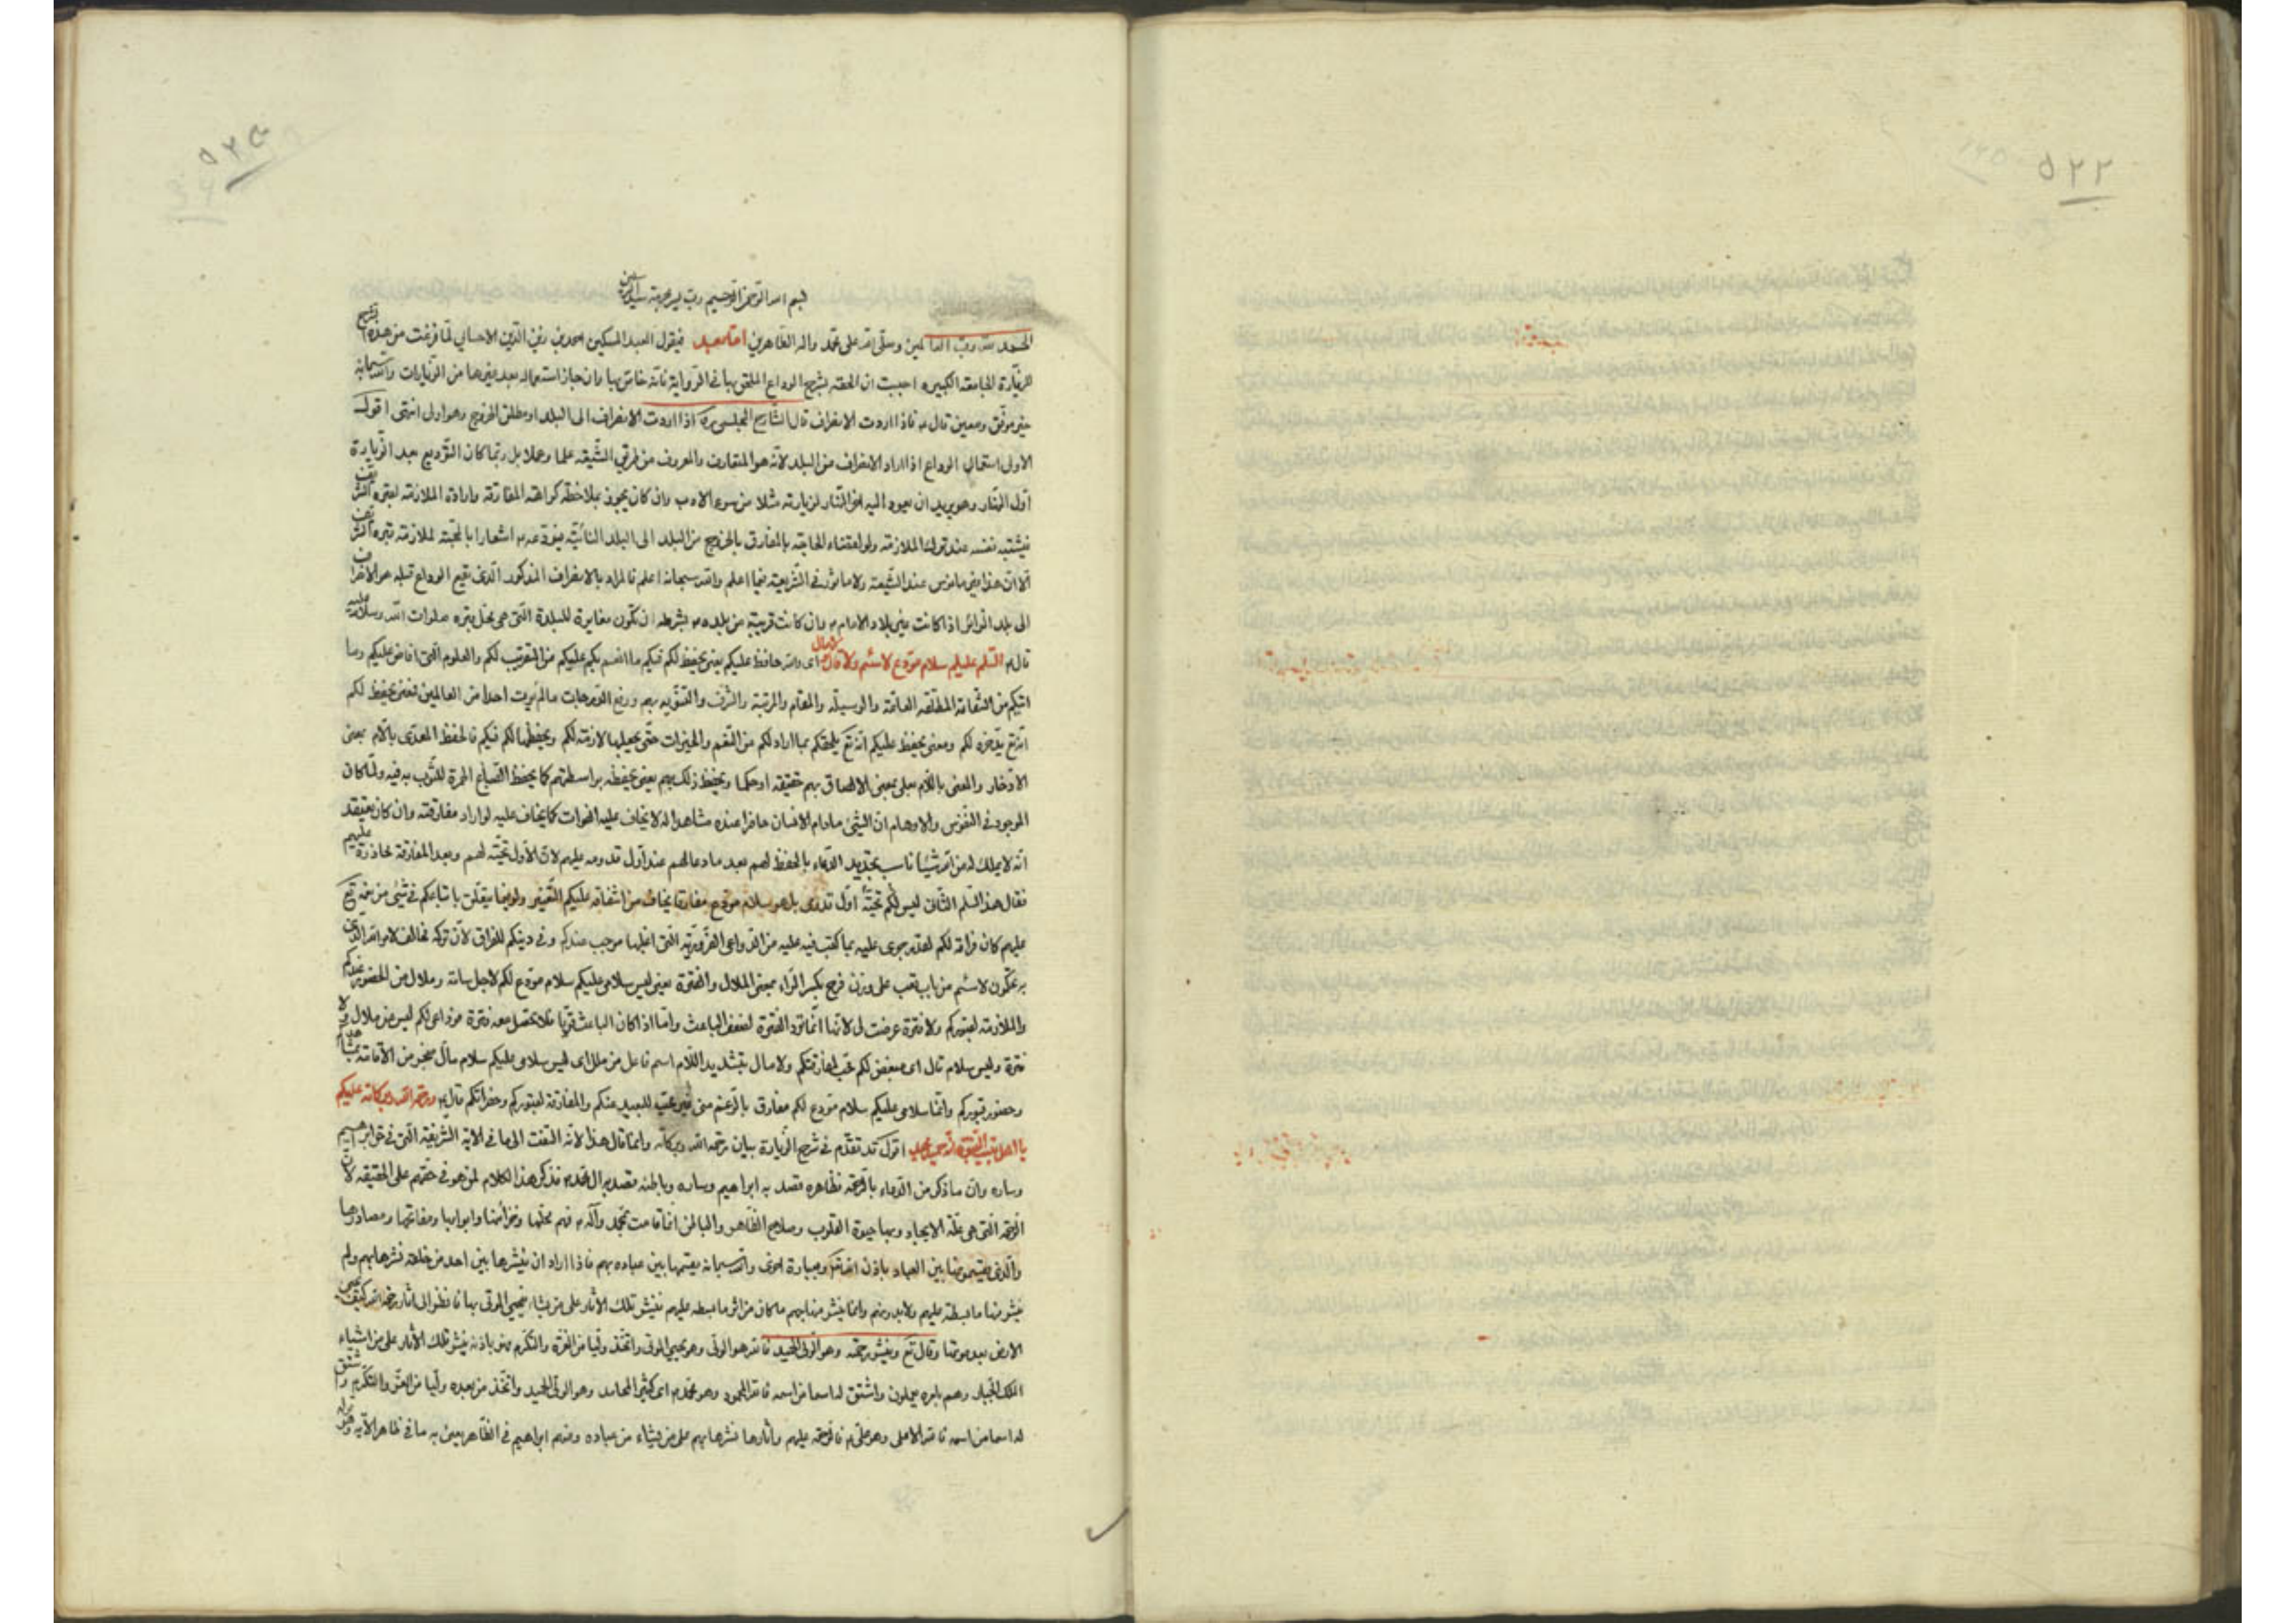 ٥٢٢
٥٢٣
بسم الله الرحمن الرحيم رب يسر
الحمد لله رب العالمين وصلى الله على محمد واله الطاهرين اما بعد فيقول العبد المسكين احمد بن زين الدين الاحسائي لما فرغت من هذه الشرح
للزيارة الجامعة الكبيرة احببت ان الحقه بشرح الوداع الملحق بها في الرواية لانه خاص بها وان جاز استعماله بعد غيرها من الزيارات والله سبحانه
خير موفق ومعين قال ع فاذا اردت الانصراف قال الشارح المجلسي ره اذا اردت الانصراف الى البلد او مطلق الخروج وهو اولى انتهى اقول
الاولى استعمال الوداع اذا اراد الانصراف من البلد لانه هو المتعارف والمعروف من طريق الشيعة علما وعملا بل ربما كان التوديع بعد الزيارة
اول النهار وهو يريد ان يعود اليه اخر النهار لزيارته مثلا من سوء الادب وان كان يجوز بملاحظة كراهة المفارقة وارادة الملازمة لقبره الشريف
نفسه عند ترك الملازمة ولو لقضاء الحاجة بالمفارق بالخروج من البلد الى البلد النائية فيودعه ع اشعارا بالمحبة لملازمة قبره الشريف
الا ان هذا غير مانوس عند الشيعة ولا ماثور في الشريعة فيما اعلم والله سبحانه اعلم فالمراد بالانصراف المذكور الذي يقع الوداع قبله هو الانصراف
الى بلد الزائر اذا كانت غير بلاد الامام ع وان كانت قريبة من بلده ع بشرط ان تكون مغايرة للبلدة التي هي محل قبره صلوات الله وسلامه عليه
قال ع السلام عليكم سلام مودع لا سئم ولا قال ولا مال اي والله حافظ عليكم يعني يحفظ لكم فيكم ما انعم بكم عليكم من التقريب لكم والعلوم التي افاض عليكم وما
اتيكم من الشفاعة المطلقة العامة والوسيلة والمقام والمرتبة والشرف والتنويه بهم ورفع الدرجات ما لم يؤت احدا من العالمين فمعنى يحفظ لكم
انه تع يدخره لكم ومعنى يحفظ عليكم انه تع يلحقكم بما اراد لكم من النعم والخيرات حتى يجعلها لازمة لكم ويحفظها لكم فيكم فالحفظ المعدى باللام بمعنى
الادخار والمعنى باللام بعلى بمعنى الالصاق بهم حقيقة او حكما ويحفظ ذلك بهم يعني يحفظه بواسطتهم كما يحفظ الصباغ الحمرة للثوب به فيه ولما كان
الموجود في النفوس والاوهام ان الشئ مادام الانسان حاضرا عنده مشاهدا له لا يخاف عليه الفوات كما يخاف عليه لو اراد مفارقته وان كان يعتقد
انه لا يملك له من الله شيئا ناسب تجديد الدعاء بالحفظ لهم بعد ما دعا لهم عند اول قدومه عليهم لان الاول تحية لهم وبعد المفارقة محاذرة عليهم
فقال هذا السلم الثاني ليس لكم تحية اول قدومي بل هو سلام مودع مفارق يخاف من اشفاقه عليكم التغير ولو فيما يتعلق باتباعكم في شئ من نعمة تع
عليهم كان فراقه لكم لقدر جرى عليه بما كتب فيه عليه من الدواعي الضرورية التي اغلبها موجب عندكم وفي دينكم للفراق لان تركه مخالف لامر الله الذي
لا سئم من باب تعب على وزن فرح بكسر الراء بمعنى الملال والفترة يعني ليس سلامي عليكم سلام مودع لكم لاجل سامة وملال من الحضور عندكم
والملازمة لقبوركم ولا فترة عرضت لي لانها انما ترد الفترة لضعف الباعث واما اذا كان الباعث قويا فلا يحصل معه فترة فوداعي لكم ليس من ملال ولا
فترة وليس سلام قال اي مبغض لكم محب لمفارقتكم ولا مال بتشديد اللام اسم فاعل من ملل اي ليس سلامي عليكم سلام مال ضجر من الاقامة
وحضور قبوركم وانما سلامي عليكم سلام مودع لكم مفارق بالرغم مني غير محب للبعد عنكم والمفارقة لقبوركم وحضراتكم قال ع ورحمة الله وبركاته عليكم
يا اهل بيت النبوة انه حميد مجيد اقول قد تقدم في شرح الزيارة بيان رحمة الله وبركاته وانما قال هذا لانه التفت الى ما في الاية الشريفة التي في حق ابراهيم
وساره وان ما ذكر من الدعاء بالرحمة فظاهره قصد به ابراهيم وساره وباطنه قصد به ال محمد ع فذكر هذا الكلام لمن هو في حقهم على الحقيقة لان
الرحمة التي هي علة الايجاد وبها حيوة القلوب وصلاح الظاهر والباطن انما قامت بمحمد وآله ع فهم محلها وخزائنها وابوابها ومفاتحها ومصادرها
والذين يقسمونها بين العباد باذن الله تع وبعبارة اخرى والله سبحانه يقسمها بين عباده بهم فاذا اراد ان ينشرها بين احد من خلقه نشرها بهم ولم
ينشر منها ما بسطه عليهم ولا بدونهم وانما ينشر منها بهم ما كان من اثر ما بسطه عليهم فينشر تلك الاثار على من يشاء فيحيي الموتى بها فانظر الى اثار رحمة الله كيف يحيي
الارض بعد موتها وقال تع وينشر رحمته وهو الولي الحميد فالله هو الولي وهو يحيي الموتى واتخذ وليا من العزة والتكرم فهو باذنه ينشر تلك الاثار على من اشياء
الملك الجبار وهم بامره يعملون واشتق له اسما من اسمه فالله المحمود وهو محمد ص اي كثير المحامد وهو الولي الحميد واتخذ من عبده وليا من العز والتكرم واشتق
له اسما من اسمه فالله الاعلى وهو علي ع فالرحمة عليهم واثارها نشرها بهم على من يشاء من عباده ومنهم ابراهيم في الظاهر يعني به ما في ظاهر الآية